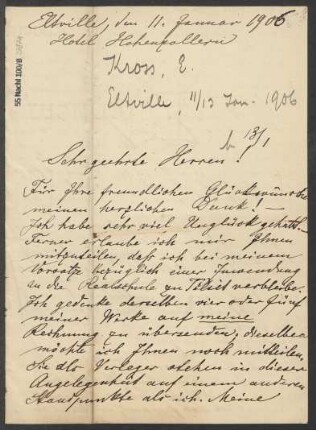 Eltville, den 11. Januar 1906
Hotel Hohenzollern
Kross, E.
Eltville, 11/13 Jan. 1906
b 13/1
Sehr geehrte Herren!
Für Ihre freundlichen Glückwünsche
meinen herzlichen Dank!
Ich habe sehr viel Unglück gehabt.
Ferner erlaube ich mir Ihnen
mitzuteilen, daß ich bei meinem
Vorsatz bezüglich einer Zuwendung
an die Realschule zu Tilsit verbleibe.
Ich gedenke derselben vier oder fünf
meiner Werke auf meine
Rechnung zu übersenden, dieselben
möchte ich Ihnen noch mitteilen.
Sie als Verleger stehen in dieser
Angelegenheit auf einem anderen
Standpunkte als ich. Meine